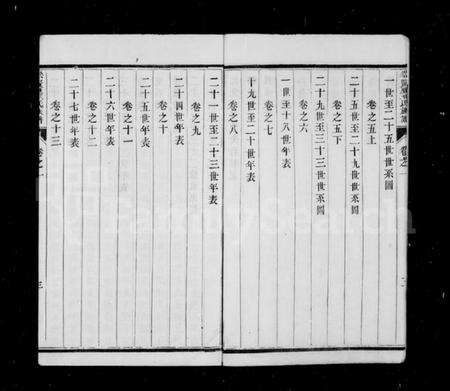 一世至二十五世世系圖
卷之五上
二十五世至二十九世世系圖
卷之五下
二十九世至三十三世世系圖
卷之六
一世至十八世年表
卷之七
十九世至二十世年表
卷之八
二十一世至二十三世年表
卷之九
二十四世年表
卷之十
二十五世年表
卷之十一
二十六世年表
卷之十二
二十七世年表
卷之十三
卷之一
二
三